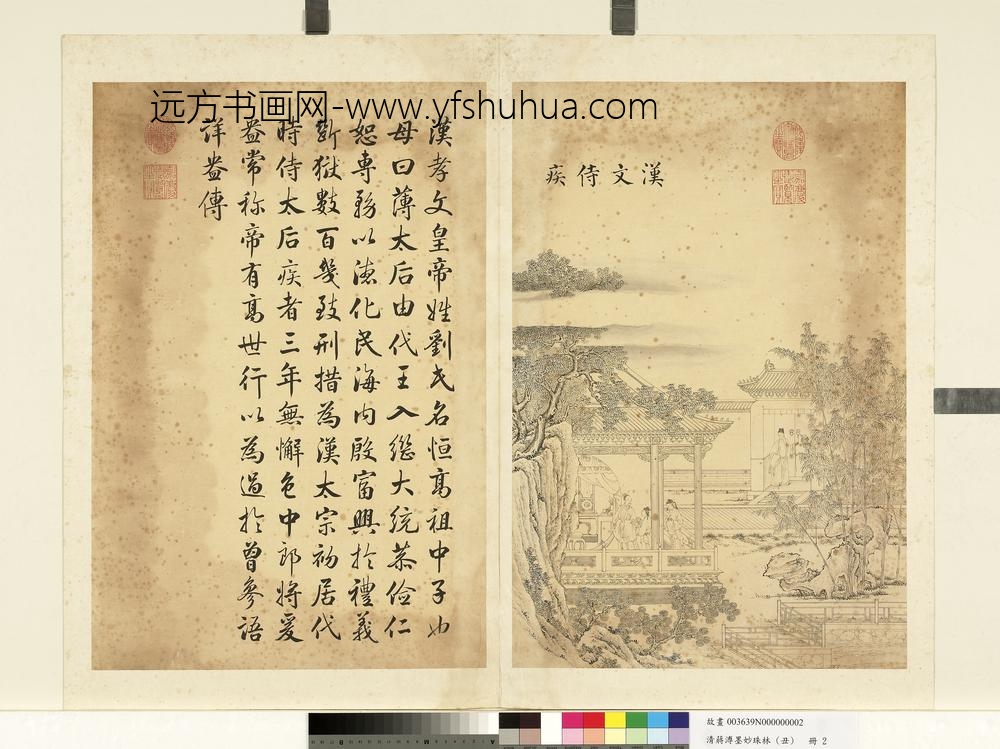 远方书画网-www.yfshuhua.com
漢文侍疾
漢孝文皇帝姓劉氏名恒高祖中子也
母曰薄太后由代王入繼大統恭儉仁
恕專務以德化民海内殷富興於禮義
斷獄數百幾致刑措為漢太宗初居代
時侍太后疾者三年無懈色中郎將爰
盎常称帝有高世行以為過於曾參語
詳盎傳
故畫 003639N000000002
清蔣溥墨妙珠林（丑） 冊 2